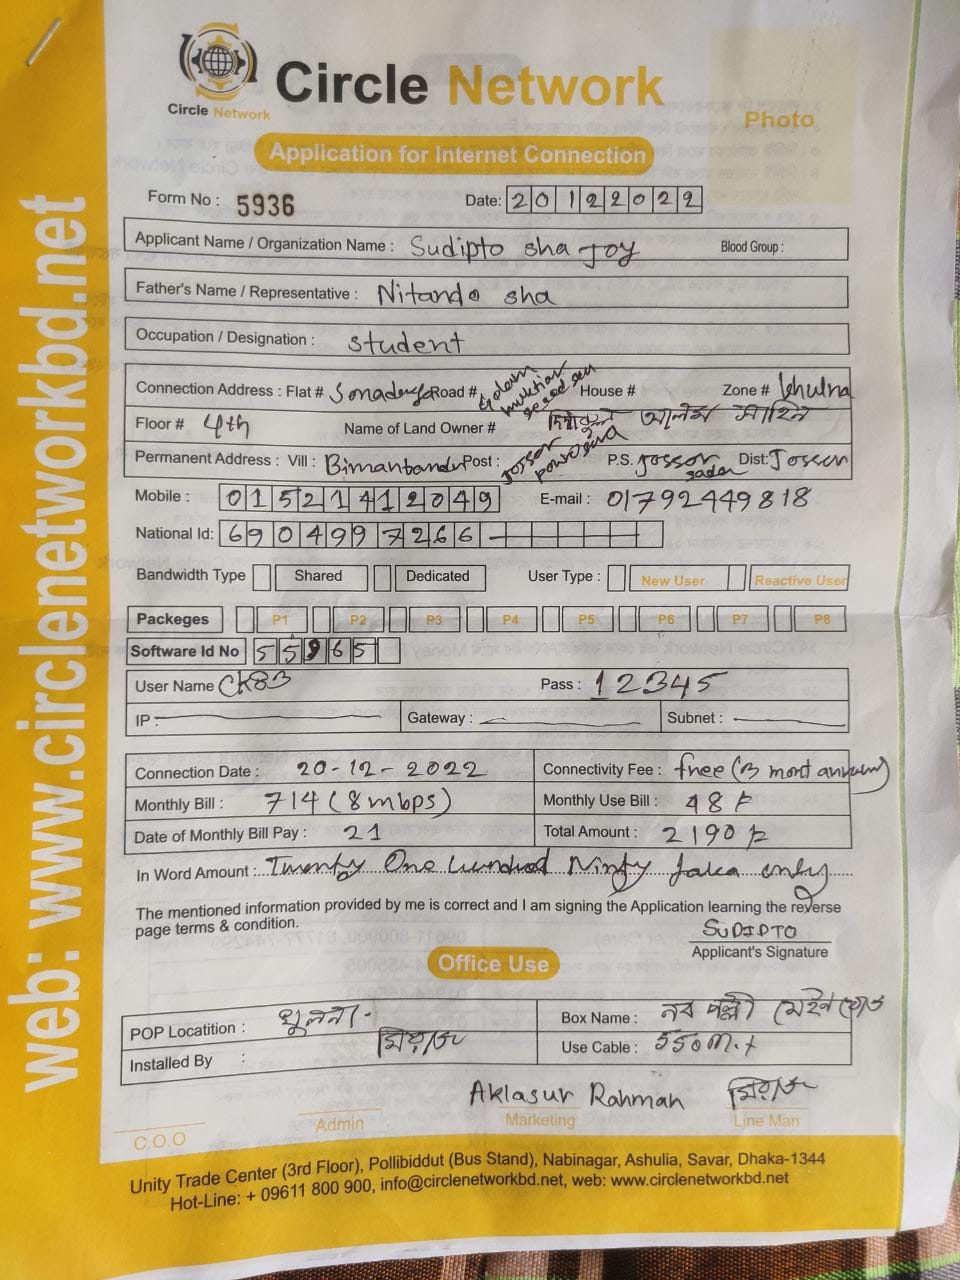 Circle Network
Circle Network
Photo
Application for Internet Connection
Form No : 5936
Date: 20122022
Applicant Name / Organization Name : Sudipto sha Joy Blood Group :
Father's Name / Representative : Nitando sha
Occupation / Designation : student
Connection Address : Flat # Road # House # Zone # khulna
Floor # 4th Name of Land Owner #
Permanent Address : Vill : Post : P.S. Jossor sadar Dist:
Mobile : 01521412049 E-mail : 01792449818
National Id: 6904997266
Bandwidth Type Shared Dedicated User Type : New User Reactive User
Packeges P1 P2 P3 P4 P5 P6 P7 P8
Software Id No 55965
User Name Ck83 Pass : 12345
IP : Gateway : Subnet :
Connection Date : 20-12-2022 Connectivity Fee : free
Monthly Bill : 714 (8 mbps) Monthly Use Bill : 48
Date of Monthly Bill Pay : 21 Total Amount : 2190
In Word Amount : Twenty One hundred Ninty taka only
The mentioned information provided by me is correct and I am signing the Application learning the reverse
page terms & condition.
SUDIPTO
Applicant's Signature
Office Use
POP Locatition : খুলনা - Box Name : নব পল্লী
Installed By : মিরাজ Use Cable : 550m.
Aklasur Rahman মিরাজ
C.O.O Admin Marketing Line Man
Unity Trade Center (3rd Floor), Pollibiddut (Bus Stand), Nabinagar, Ashulia, Savar, Dhaka-1344
Hot-Line: + 09611 800 900, info@circlenetworkbd.net, web: www.circlenetworkbd.net
web: www.circlenetworkbd.net